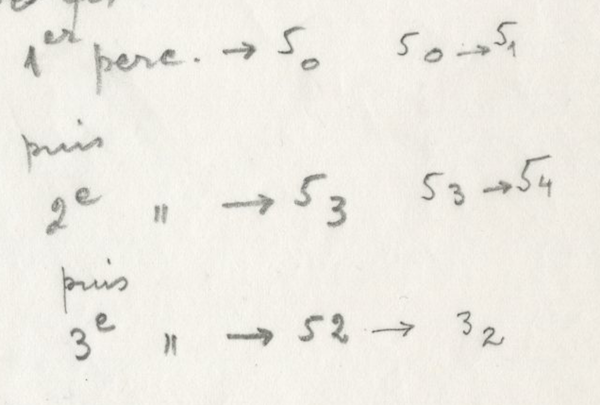 1er perc. → 50 50 → 51
puis
2e " → 53 53 → 54
puis
3e " → 52 → 32